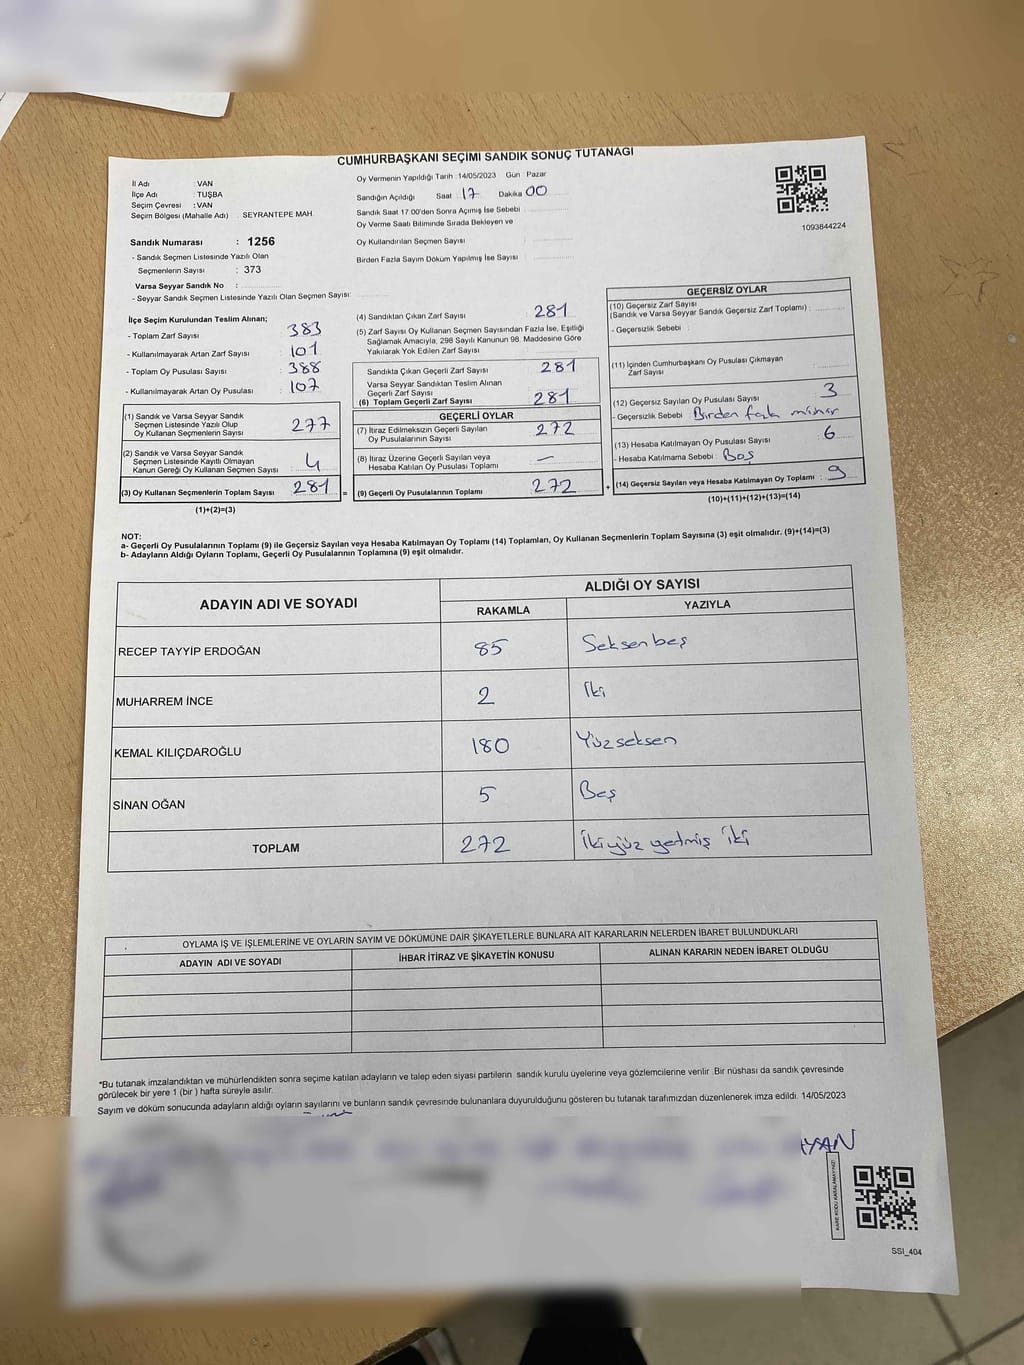 CUMHURBAŞKANI SEÇİMİ SANDIK SONUÇ TUTANAĞI
İl Adı : VAN
İlçe Adı : TUŞBA
Seçim Çevresi : VAN
Seçim Bölgesi (Mahalle Adı) SEYRANTEPE MAH
Sandık Numarası : 1256
- Sandık Seçmen Listesinde Yazılı Olan
Seçmenlerin Sayısı : 373
Varsa Seyyar Sandık No :
- Seyyar Sandık Seçmen Listesinde Yazılı Olan Seçmen Sayısı:
Oy Vermenin Yapıldığı Tarih : 14/05/2023 Gün : Pazar
Sandığın Açıldığı Saat 17 Dakika 00
Sandık Saat 17.00'den Sonra Açımış İse Sebebi
Oy Verme Saati Bitiminde Sırada Bekleyen ve
Oy Kullandırılan Seçmen Sayısı
Birden Fazla Sayım Döküm Yapılmış İse Sayısı :
1093844224
İlçe Seçim Kurulundan Teslim Alınan;
- Toplam Zarf Sayısı : 383
- Kullanılmayarak Artan Zarf Sayısı : 101
- Toplam Oy Pusulası Sayısı : 388
- Kullanılmayarak Artan Oy Pusulası : 107
(1) Sandık ve Varsa Seyyar Sandık
Seçmen Listesinde Yazılı Olup
Oy Kullanan Seçmenlerin Sayısı : 277
(2) Sandık ve Varsa Seyyar Sandık
Seçmen Listesinde Kayıtlı Olmayan
Kanun Gereği Oy Kullanan Seçmen Sayısı : 4
(3) Oy Kullanan Seçmenlerin Toplam Sayısı 281 =
(1)+(2)=(3)
(4) Sandıktan Çıkan Zarf Sayısı : 281
(5) Zarf Sayısı Oy Kullanan Seçmen Sayısından Fazla İse, Eşitliği
Sağlamak Amacıyla, 298 Sayılı Kanunun 98. Maddesine Göre
Yakılarak Yok Edilen Zarf Sayısı :
Sandıkta Çıkan Geçerli Zarf Sayısı : 281
Varsa Seyyar Sandıktan Teslim Alınan
Geçerli Zarf Sayısı :
(6) Toplam Geçerli Zarf Sayısı : 281
GEÇERLİ OYLAR
(7) İtiraz Edilmeksizin Geçerli Sayılan
Oy Pusulalarının Sayısı : 272
(8) İtiraz Üzerine Geçerli Sayılan veya
Hesaba Katılan Oy Pusulası Toplamı : —
(9) Geçerli Oy Pusulalarının Toplamı : 272 +
GEÇERSİZ OYLAR
(10) Geçersiz Zarf Sayısı
(Sandık ve Varsa Seyyar Sandık Geçersiz Zarf Toplamı) :
- Geçersizlik Sebebi :
(11) İçinden Cumhurbaşkanı Oy Pusulası Çıkmayan
Zarf Sayısı :
(12) Geçersiz Sayılan Oy Pusulası Sayısı : 3
- Geçersizlik Sebebi : Birden fazla mühür
(13) Hesaba Katılmayan Oy Pusulası Sayısı : 6
- Hesaba Katılmama Sebebi : Boş
(14) Geçersiz Sayılan veya Hesaba Katılmayan Oy Toplamı : 9
(10)+(11)+(12)+(13)=(14)
NOT:
a- Geçerli Oy Pusulalarının Toplamı (9) ile Geçersiz Sayılan veya Hesaba Katılmayan Oy Toplamı (14) Toplamları, Oy Kullanan Seçmenlerin Toplam Sayısına (3) eşit olmalıdır. (9)+(14)=(3)
b- Adayların Aldığı Oyların Toplamı, Geçerli Oy Pusulalarının Toplamına (9) eşit olmalıdır.
ADAYIN ADI VE SOYADI
ALDIĞI OY SAYISI
RAKAMLA YAZIYLA
RECEP TAYYİP ERDOĞAN 85 Seksenbeş
MUHARREM İNCE 2 İki
KEMAL KILIÇDAROĞLU 180 Yüzseksen
SİNAN OĞAN 5 Beş
TOPLAM 272 İkiyüz yetmiş iki
OYLAMA İŞ VE İŞLEMLERİNE VE OYLARIN SAYIM VE DÖKÜMÜNE DAİR ŞİKAYETLERLE BUNLARA AİT KARARLARIN NELERDEN İBARET BULUNDUKLARI
ADAYIN ADI VE SOYADI İHBAR İTİRAZ VE ŞİKAYETİN KONUSU ALINAN KARARIN NEDEN İBARET OLDUĞU
*Bu tutanak imzalandıktan ve mühürlendikten sonra seçime katılan adayların ve talep eden siyasi partilerin sandık kurulu üyelerine veya gözlemcilerine verilir. Bir nüshası da sandık çevresinde
görülecek bir yere 1 (bir) hafta süreyle asılır.
Sayım ve döküm sonucunda adayların aldığı oyların sayılarını ve bunların sandık çevresinde bulunanlara duyurulduğunu gösteren bu tutanak tarafımızdan düzenlenerek imza edildi. 14/05/2023
KARE KODU KARALAMAYINIZ!
SSI_404